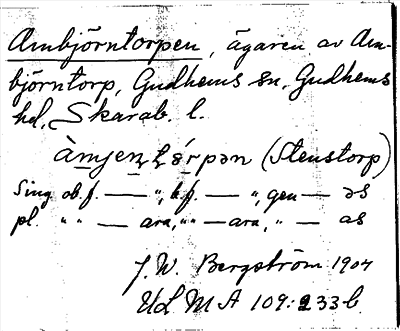 Ambjörntorpen, ägaren av Am-
björntorp, Gudhems sn, Gudhems
hd, Skarab. l.
(Stenstorp)
Sing. ob. f. — „, b. f. — „, gen — əs
pl. „ „ — ara, „ „ — ara, „ — as
J. W. Bergström 1904
ULMA 109:233 b.